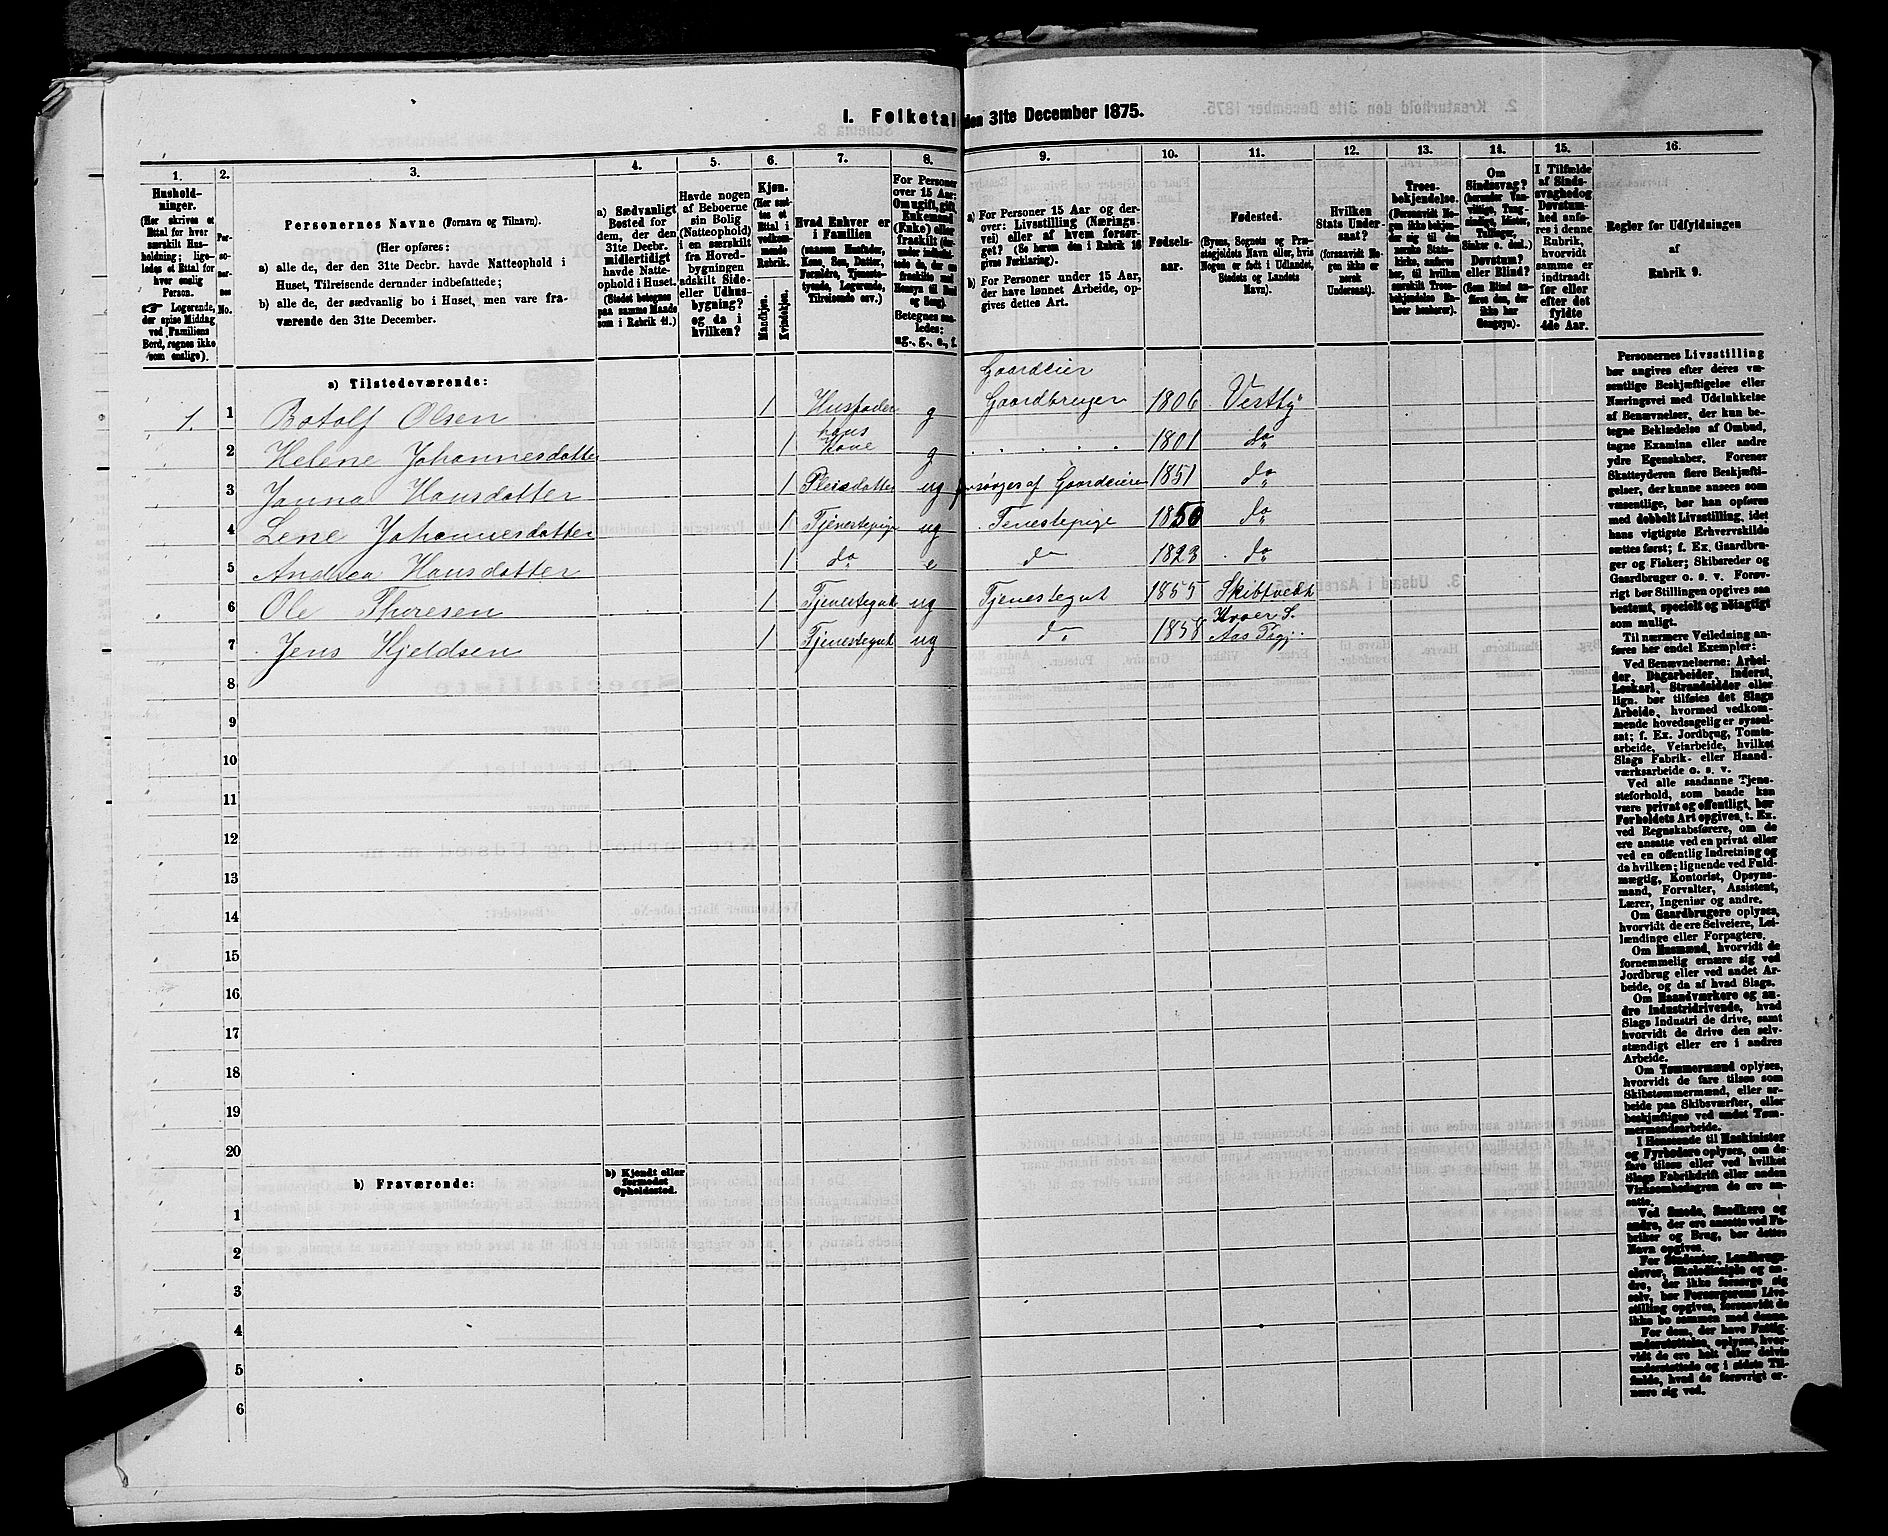 I. Folketal den 31te December 1875.
1. 2. 3. 4. 5. 6. 7. 8. 9. 10. 11. 12. 13. 14. 15. 16.
Husholdninger.
(Her skrives et Ettal for hver særskilt Husholdning; ligeledes et Ettal for hver enslig Person.
☞ Logerende, der spise Middag ved Familiens Bord, regnes ikke som enslige).
Personernes No.
Personernes Navne (Fornavn og Tilnavn).
(Her opføres:
a) alle de, der den 31te Decbr. havde Natteophold i Huset, Tilreisende derunder indbefattede;
b) alle de, der sædvanlig bo i Huset, men vare fraværende den 31te December.
a) Sædvanligt Bosted for dem, der den 31te Decbr. midlertidigt havde Natteophold i Huset.
(Stedet betegnes paa samme Maade som i Rubrik 11.)
Havde nogen af Beboerne sin Bolig (Natteophold) i en særskilt fra Hovedbygningen adskilt Side- eller Udhusbygning? og da i hvilken?
Kjøn.
(Her sættes et Ettal i vedkommende Rubrik.
Mandkjøn.
Kvindekjøn.
Hvad Enhver er i Familien
(saasom Husfader, Kone, Søn, Datter, Forældre, Tjenestetyende, Logerende, Tilreisende osv.)
For Personer over 15 Aar: Om ugift, gift, Enkemand (Enke) eller fraskilt
Betegnes saaledes:
ug., g., e., f.
a) For Personer 15 Aar og derover: Livsstilling (Næringsvei) eller af hvem forsørget? (Se herom den i Rubrik 16 givne Forklaring).
b) For Personer under 15 Aar, der have lønnet Arbeide, opgives dettes Art.
Fødselsaar.
Fødested.
(Byens, Sognets og Præstegjeldets Navn eller, hvis Nogen er født i Udlandet, Stedets og Landets Navn).
Hvilken Stats Undersaat?
(forsaavidt Nogen ikke er norsk Undersaat).
Troesbekjendelse.
(Forsaavidt Nogen ikke bekjender sig til den norske Statskirke, anføres her, til hvilken særskilt Troesbekjendelse han hører).
Om Sindssvag? Døvstum? eller Blind?
(Som Blind anføres den, der ikke har Gangsyn).
I Tilfælde af Sindssvaghed og Døvstumhed anføres i denne Rubrik, hvorvidt samme er indtraadt før eller efter det fyldte 4de Aar.
Regler for Udfyldningen af Rubrik 9.
a) Tilstedeværende:
1. 1 Botolf Olsen 1 Husfader g Gaardeier Gaardbruger 1806 Vestby
2 Helene Johannesdatter 1 hans Kone g 1801 do
3 Janna Hansdatter 1 Pleiedatter ug forsørges af Gaardeieren 1851 do
4 Lene Johannesdatter 1 Tjenestepige ug Tenestepige 1850 do
5 Andrea Hansdatter 1 do e do 1823 do
6 Ole Thoresen 1 Tjenestegut ug Tjenestegut 1855 Skibtvedt
7 Jens Kjeldsen 1 Tjenestegut ug do 1858 Kroer S. Aas Pgj.
8
9
10
11
12
13
14
15
16
17
18
19
20
b) Fraværende:
b) Kjendt eller formodet Opholdssted.
1
2
3
4
5
6
Personernes Livsstilling
bør angives efter deres væsentlige Beskjæftigelse eller
Næringsvei med Udelukkelse
af Benævnelser, der kun betegne Beklædelse af Ombud,
tagne Examina eller andre
ydre Egenskaber. Forener
Skatteyderen flere Beskjæftigelser, der kunne ansees som
væsentlige, bør han opføres
med dobbelt Livsstilling, idet
hans vigtigste Erhvervskilde
sættes først; f. Ex. Gaardbruger og Fisker; Skibsreder og
Gaardbruger o. s. v. Forøvrigt bør Stillingen opgives saa
bestemt, specielt og nøiagtigt
som muligt.
Til nærmere Veiledning anføres her endel Exempler:
Ved Benævnelserne: Arbeider, Dagarbeider, Inderst,
Løskarl, Strandsidder eller
lign. bør tilføies det Slags
Arbeide, hvormed vedkommende hovedsagelig er sysselsat; f. Ex. Jordbrug, Tomtearbeide, Veiarbeide, hvilket
Slags Fabrik- eller Haandværksarbeide o. s. v.
Ved alle saadanne Tjenesteforhold, som baade kan
være privat og offentligt, bør
Forholdets Art opgives, t. Ex.
ved Regnskabsførere, om de
ere ansatte ved en privat eller
ved en offentlig Indretning og
da hvilken; lignende ved Fuldmægtig, Kontorist, Opsynsmand, Forvalter, Assistent,
Lærer, Ingeniør og andre.
Om Gaardbrugere oplyses,
hvorvidt de ere Selveiere, Leilændinge eller Forpagtere.
Om Husmænd, hvorvidt de
fornemmelig ernære sig ved
Jordbrug eller ved andet Arbeide, og da af hvad Slags.
Om Haandværkere og andre Industridrivende, hvad
Slags Industri de drive, samt
hvorvidt de drive den selvstændigt eller ere i andres
Arbeide.
Om Tømmermænd oplyses,
hvorvidt de fare tilsøs som
Skibstømmermænd, eller arbeide paa Skibsværfter, eller
beskjæftiges ved andet Tømmermandsarbeide.
I Henseende til Maskinister
og Fyrbødere oplyses, om de
fare tilsøs eller ved hvilket
Slags Fabrikdrift eller anden
Virksomhedsgren de ere ansatte.
Ved Smede, Snedkere og
andre, der ere ansatte ved Fabriker og Brug, bør dettes
Navn opgives.
For Studenter, Landbrugselever, Skoledisciple og andre, der ikke forsørge sig
selv, bør Forsørgerens Livsstilling opgives, forsaavidt de
ikke bo sammen med denne.
For dem, der have Fattigunderstøttelse, oplyses, hvorvidt de ere helt eller delvis
understøttede og i sidste Tilfælde, hvad de forøvrigt ernære sig ved.